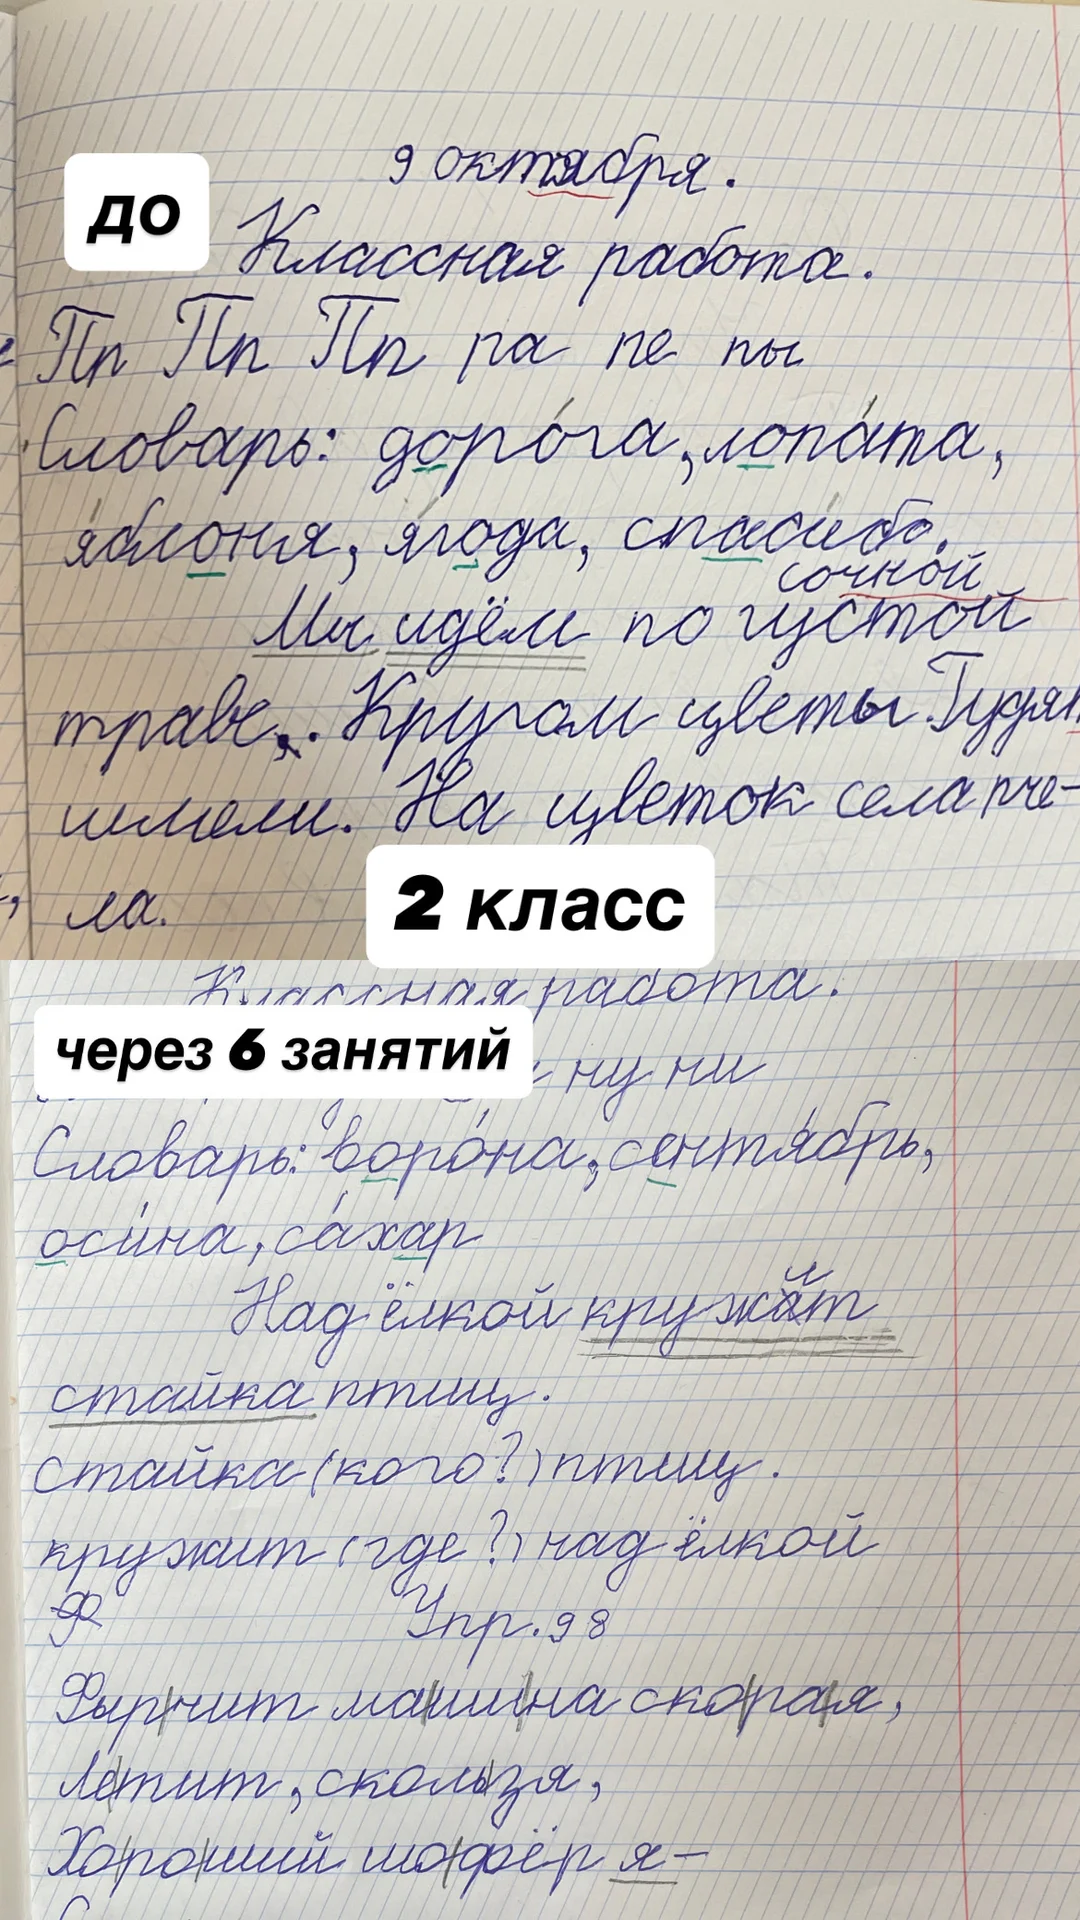 9 октября.
до
Классная работа.
Пп Пп Пп па пе пы
Словарь: дорога, лопата,
яблоня, ягода, спасибо.
сочной
Мы идём по густой
траве. Кругом цветы. Гудят
шмели. На цветок села пче-
ла.
2 класс
Классная работа.
через 6 занятий
ну ни
Словарь: ворона, сентябрь,
осина, сахар
Над ёлкой кружит
стайка птиц.
стайка (кого?) птиц.
кружит (где?) над ёлкой
Упр. 98
Фырчит машина скорая,
Летит, скользя,
Хороший шофёр я-